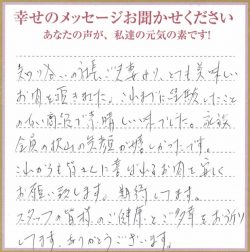 幸せのメッセージお聞かせください
あなたの声が、私達の元気の素です!
知り合いの 、ご夫妻より、とても美味しい
お肉を頂きました。これまでに経験したこと
のない 素晴しい味でした。家族
全員の 笑顔が嬉しかったです。
これからも皆さんに喜ばれるお肉を宜しく
お願い致します。期待してます。
スタッフの皆様のご健康とご多幸をお祈り
してます。ありがとうございます。